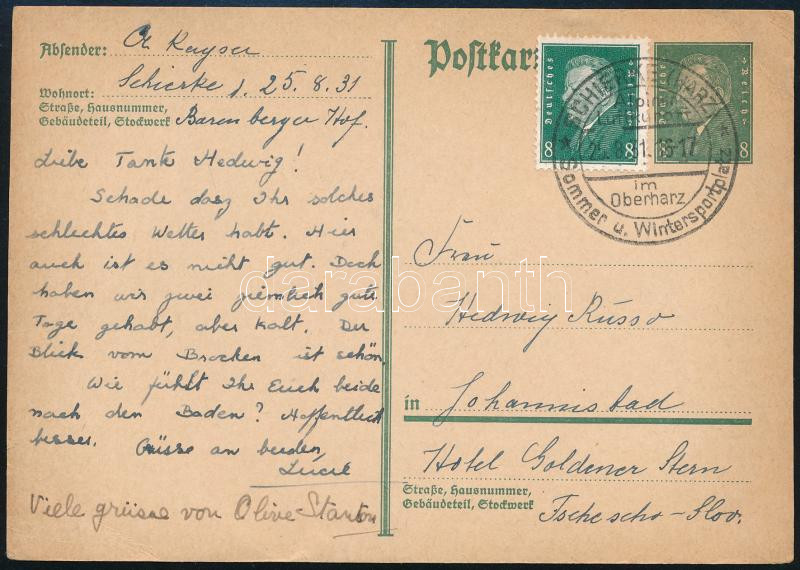 Absender: Ch Kayser
Wohnort: Schierke, 25.8.31
Straße, Hausnummer,
Gebäudeteil, Stockwerk Barenberger Hof.
Liebe Tante Hedwig!
Schade dasz Ihr solches
schlechtes Wetter habt. Hier
auch ist es nicht gut. Doch
haben wir zwei ziemlich gute
Tage gehabt, aber kalt. Der
Blick vom Brocken ist schön.
Wie fühlt Ihr Euch beide
nach den Baden? Hoffentlich
besser. Grüsse an beiden,
Lucie
Viele grüsse von Olive Stanton
Postkar
Deutsches Reich 8
Deutsches Reich 8
SCHIERKE HARZ
im
Oberharz
Sommer u. Wintersportplatz
Frau
Hedwig Russo
in Johannisbad
Hotel Goldener Stern
Straße, Hausnummer,
Gebäudeteil, Stockwerk Tschecho-Slov.
darabanth